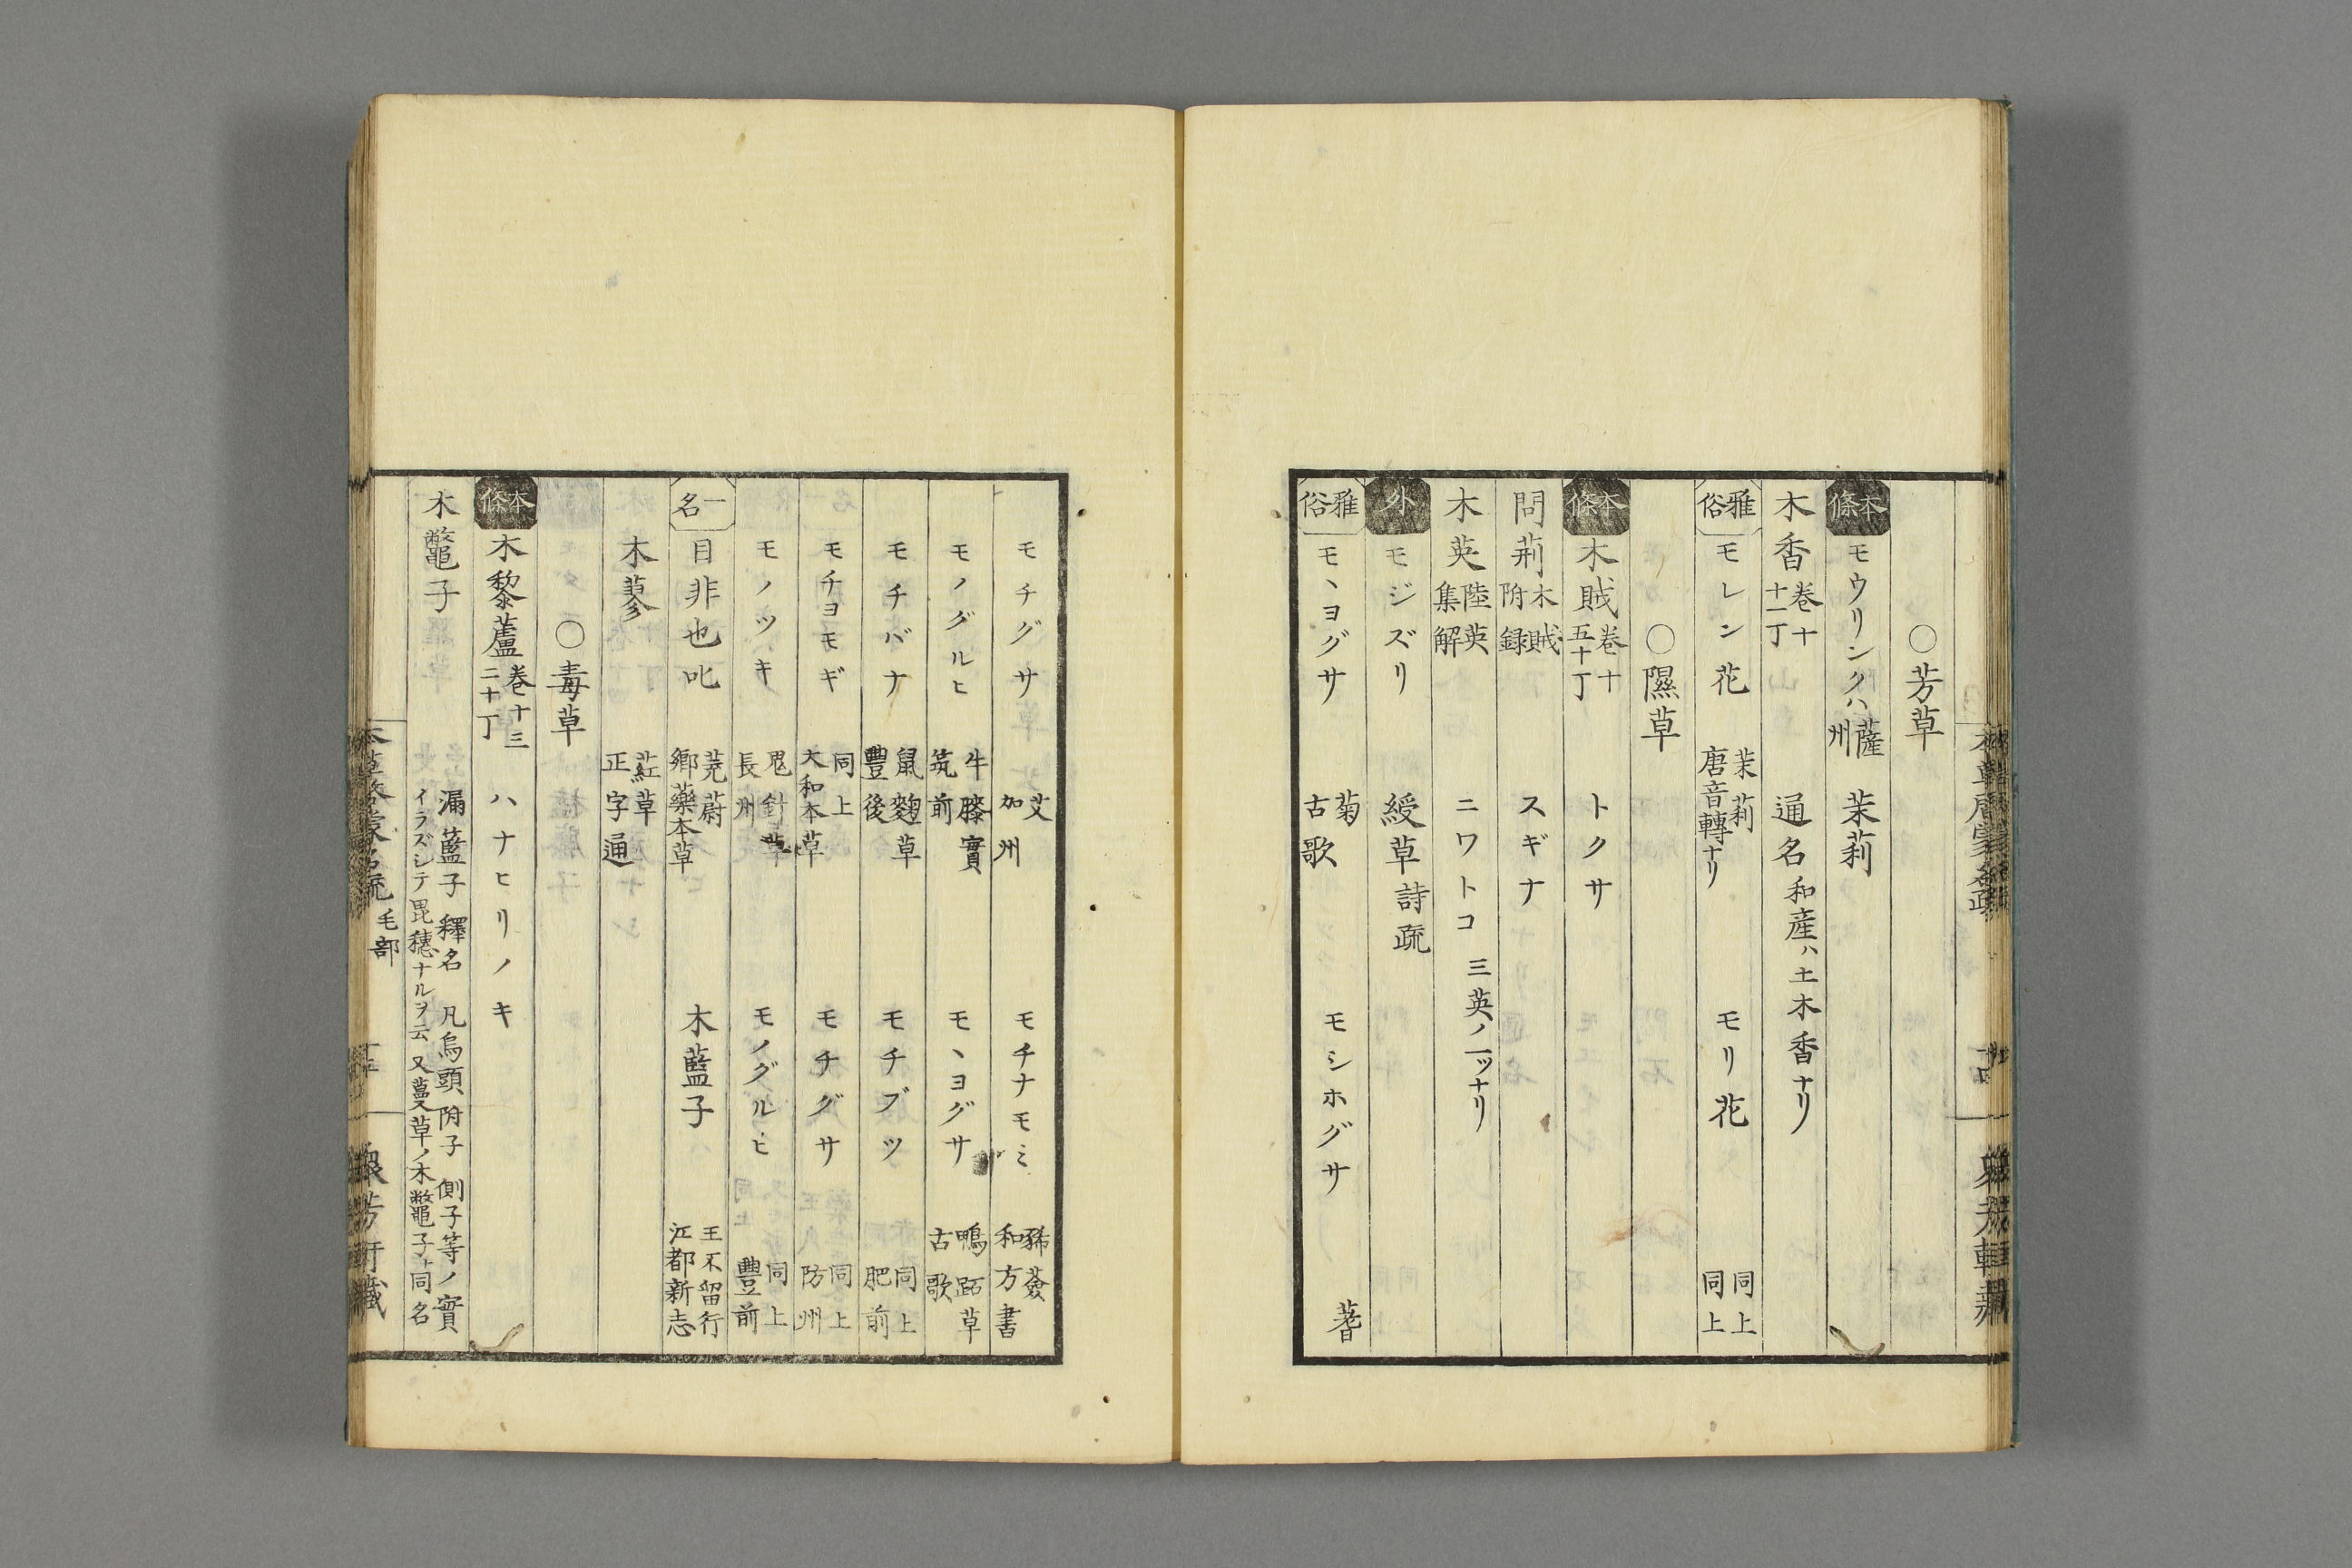 〇芳草
本條 モウリンクハ 薩州 茉莉
木香 巻十十一丁 通名 和産ハ土木香ナリ
雅俗 モレン花 茉莉唐音轉ナリ モリ花 同上同上
〇隰草
本條 木賊 巻十五十丁 トクサ
問荊 木賊附録 スギナ
木英 陸英集解 ニワトコ 三英ノ一ツナリ
外 モジズリ 綬草 詩疏
雅俗 モヽヨグサ 菊古歌 モシホグサ 蓍
モチグサ 艾加州 モチナモミ 豨薟和方書
モノグルヒ 牛膝實筑前 モヽヨグサ 鴨跖草古歌
モチバナ 鼠麴草豐後 モチブツ 同上肥前
モチヨモギ 同上大和本草 モチグサ 同上防州
モノツキ 鬼針草長州 モノグルヒ 同上豐前
一名 目非也叱 茺蔚鄉藥本草 木藍子 王不留行江都新志
木蓼 葒草正字通
〇毒草
本條 木黎蘆 巻十三二十丁 ハナヒリノキ
木鼈子 漏藍子 釋名 凡烏頭附子側子等ノ實
イラズシテ毘穗ナルヲ云 又蔓草ノ木鼈子ト同名
毛部